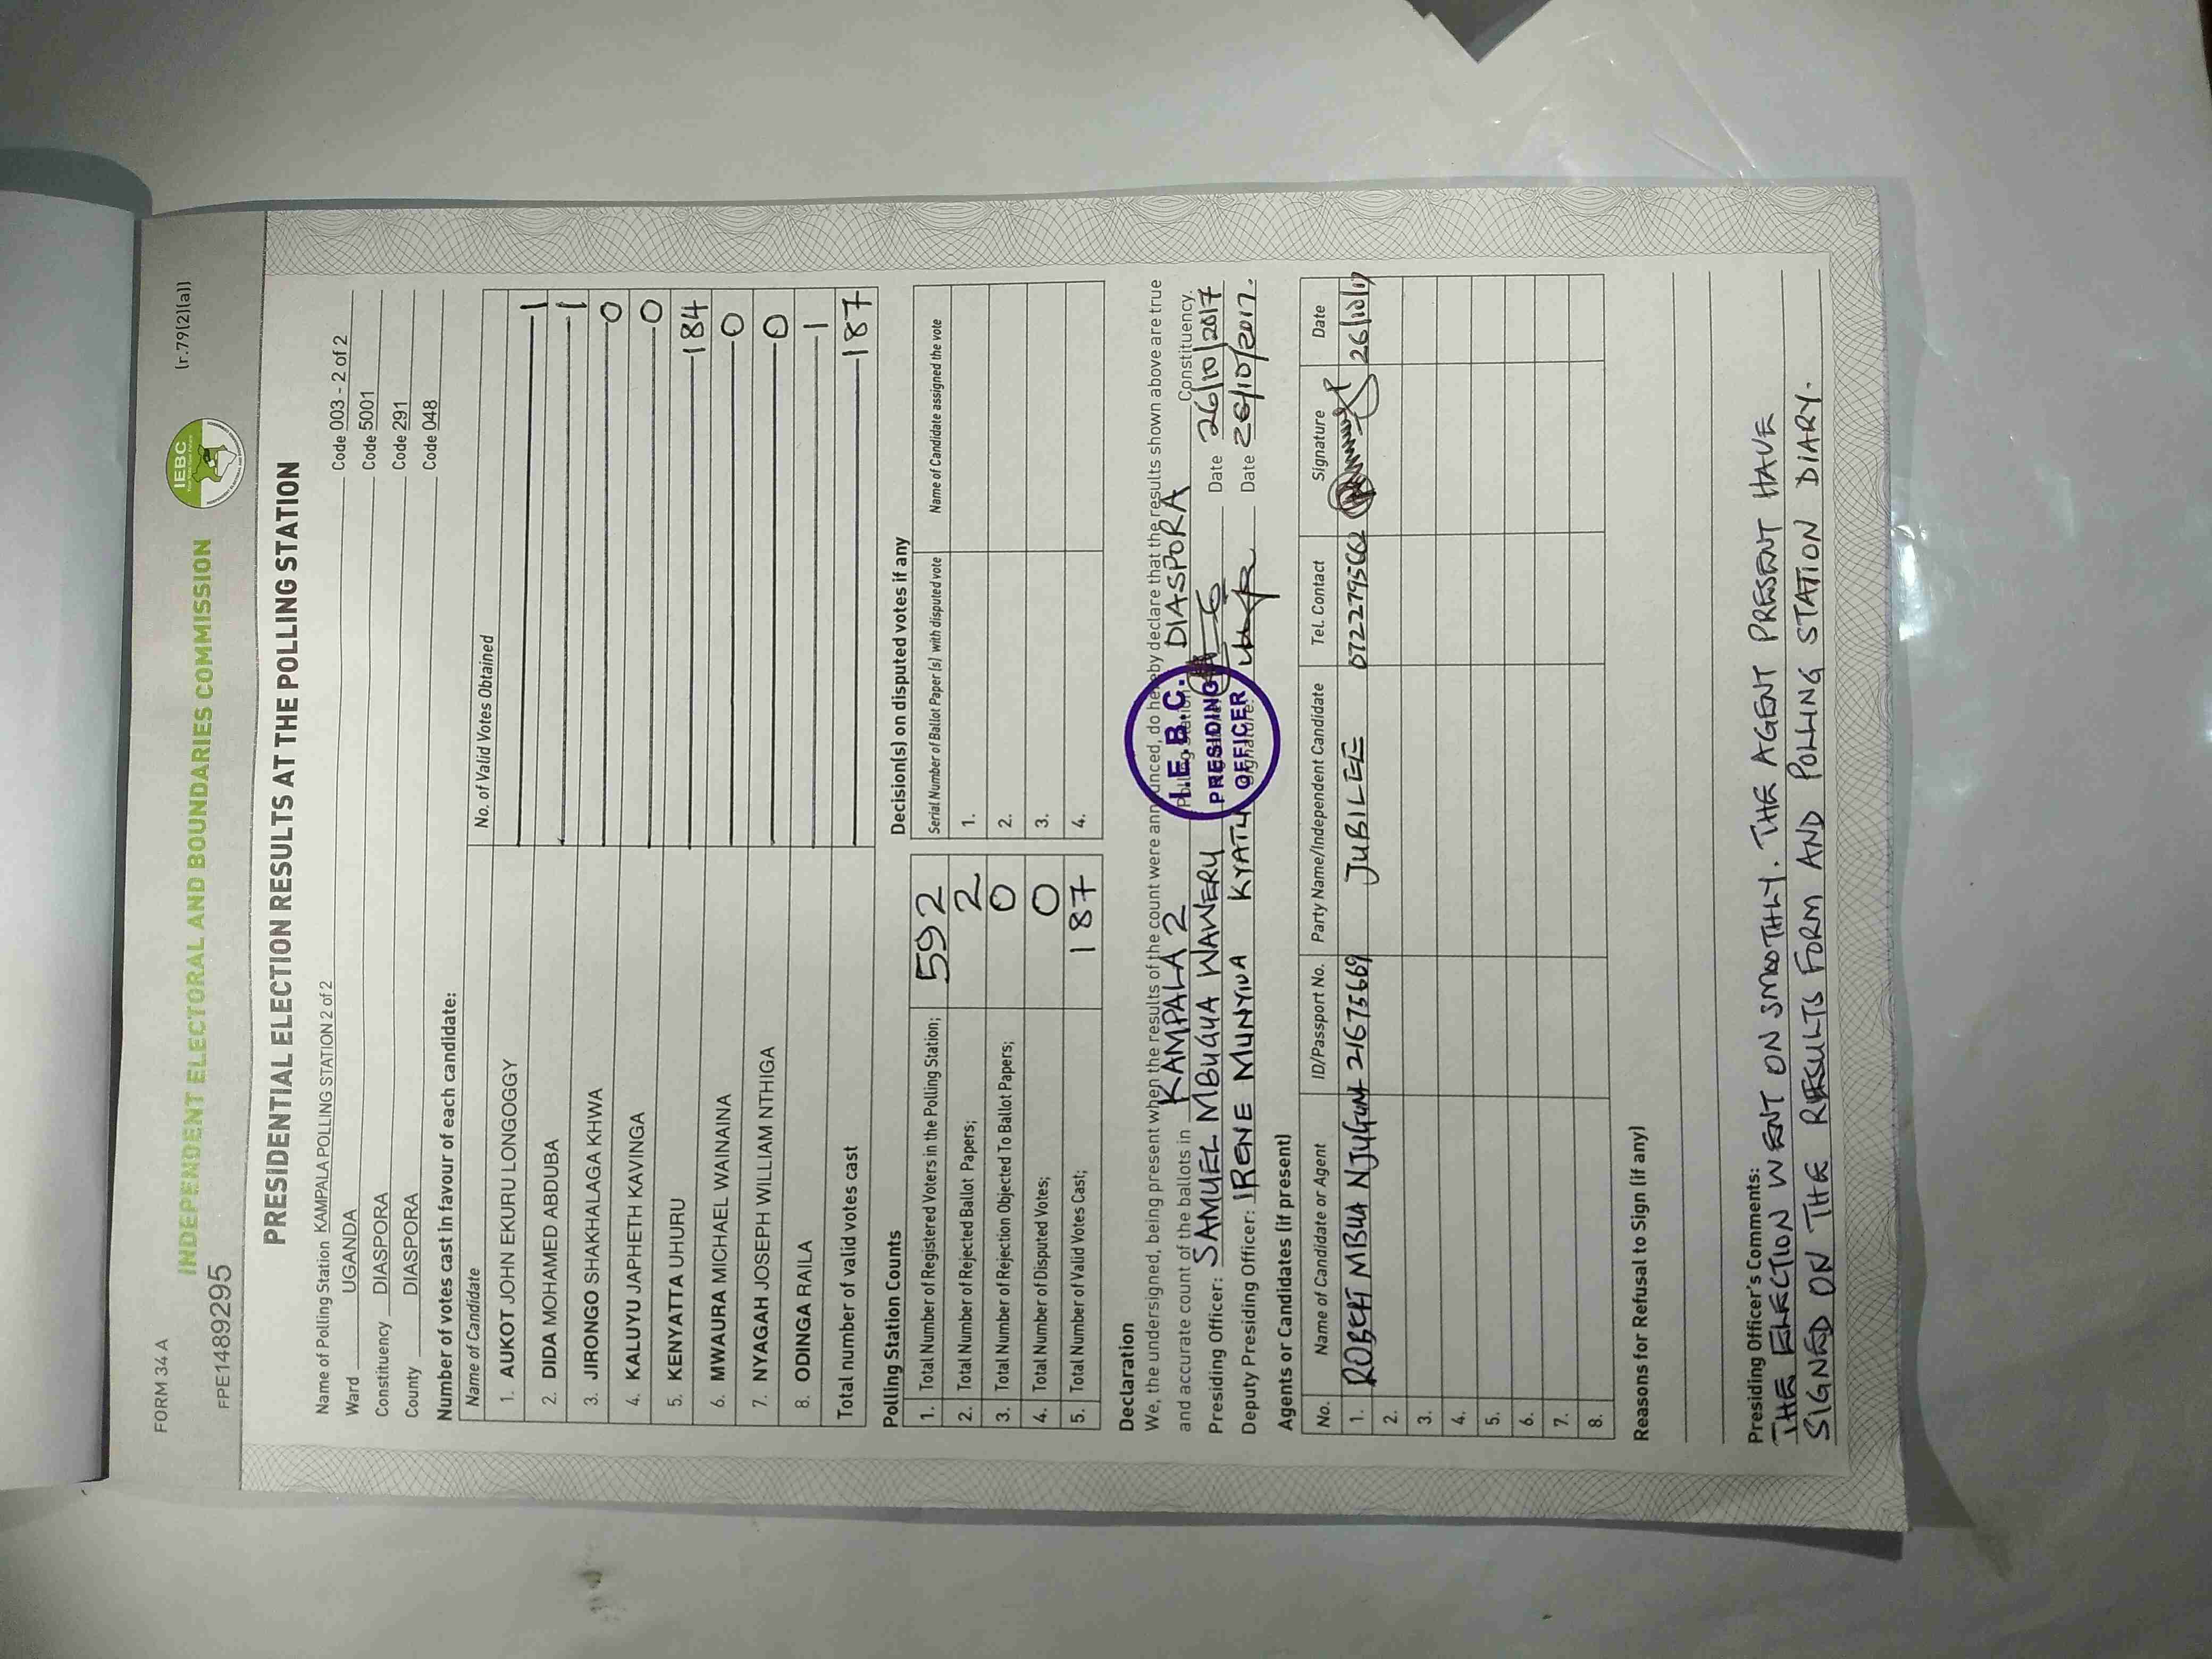 FORM 34 A
(r.79(2)(a))
INDEPENDENT ELECTORAL AND BOUNDARIES COMMISSION
IEBC
FPE1489295
PRESIDENTIAL ELECTION RESULTS AT THE POLLING STATION
Name of Polling Station KAMPALA POLLING STATION 2 of 2 Code 003 - 2 of 2
Ward UGANDA Code 5001
Constituency DIASPORA Code 291
County DIASPORA Code 048
Number of votes cast in favour of each candidate:
Name of Candidate No. of Valid Votes Obtained
1. AUKOT JOHN EKURU LONGOGGY 1
2. DIDA MOHAMED ABDUBA 1
3. JIRONGO SHAKHALAGA KHWA 0
4. KALUYU JAPHETH KAVINGA 0
5. KENYATTA UHURU 184
6. MWAURA MICHAEL WAINAINA 0
7. NYAGAH JOSEPH WILLIAM NTHIGA 0
8. ODINGA RAILA 1
Total number of valid votes cast 187
Polling Station Counts
1. Total Number of Registered Voters in the Polling Station; 592
2. Total Number of Rejected Ballot Papers; 2
3. Total Number of Rejection Objected To Ballot Papers; 0
4. Total Number of Disputed Votes; 0
5. Total Number of Valid Votes Cast; 187
Decision(s) on disputed votes if any
Serial Number of Ballot Paper(s) with disputed vote Name of Candidate assigned the vote
1.
2.
3.
4.
Declaration
We, the undersigned, being present when the results of the count were announced, do hereby declare that the results shown above are true
and accurate count of the ballots in KAMPALA 2 Polling Station DIASPORA Constituency.
Presiding Officer: SAMUEL MBUGUA WAWERU Date 26/10/2017
Deputy Presiding Officer: IRENE MUNYIVA KYATU Signature: Date 26/10/2017.
I.E.B.C.
PRESIDING
OFFICER
Agents or Candidates (if present)
No. Name of Candidate or Agent ID/Passport No. Party Name/Independent Candidate Tel. Contact Signature Date
1. ROBERT MBUA NJUGUNA 21675669 JUBILEE 26/10/17
2.
3.
4.
5.
6.
7.
8.
Reasons for Refusal to Sign (if any)
Presiding Officer's Comments:
THE ELECTION WENT ON SMOOTHLY. THE AGENT PRESENT HAVE
SIGNED ON THE RESULTS FORM AND POLLING STATION DIARY.